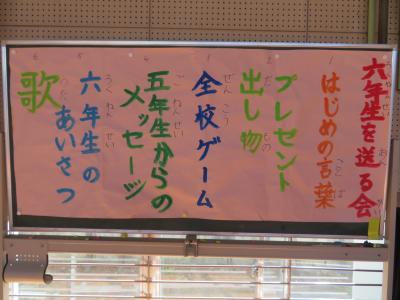 六年生を送る会
はじめの言葉
プレゼント
出し物
全校ゲーム
五年生からの
メッセージ
六年生の
あいさつ
歌